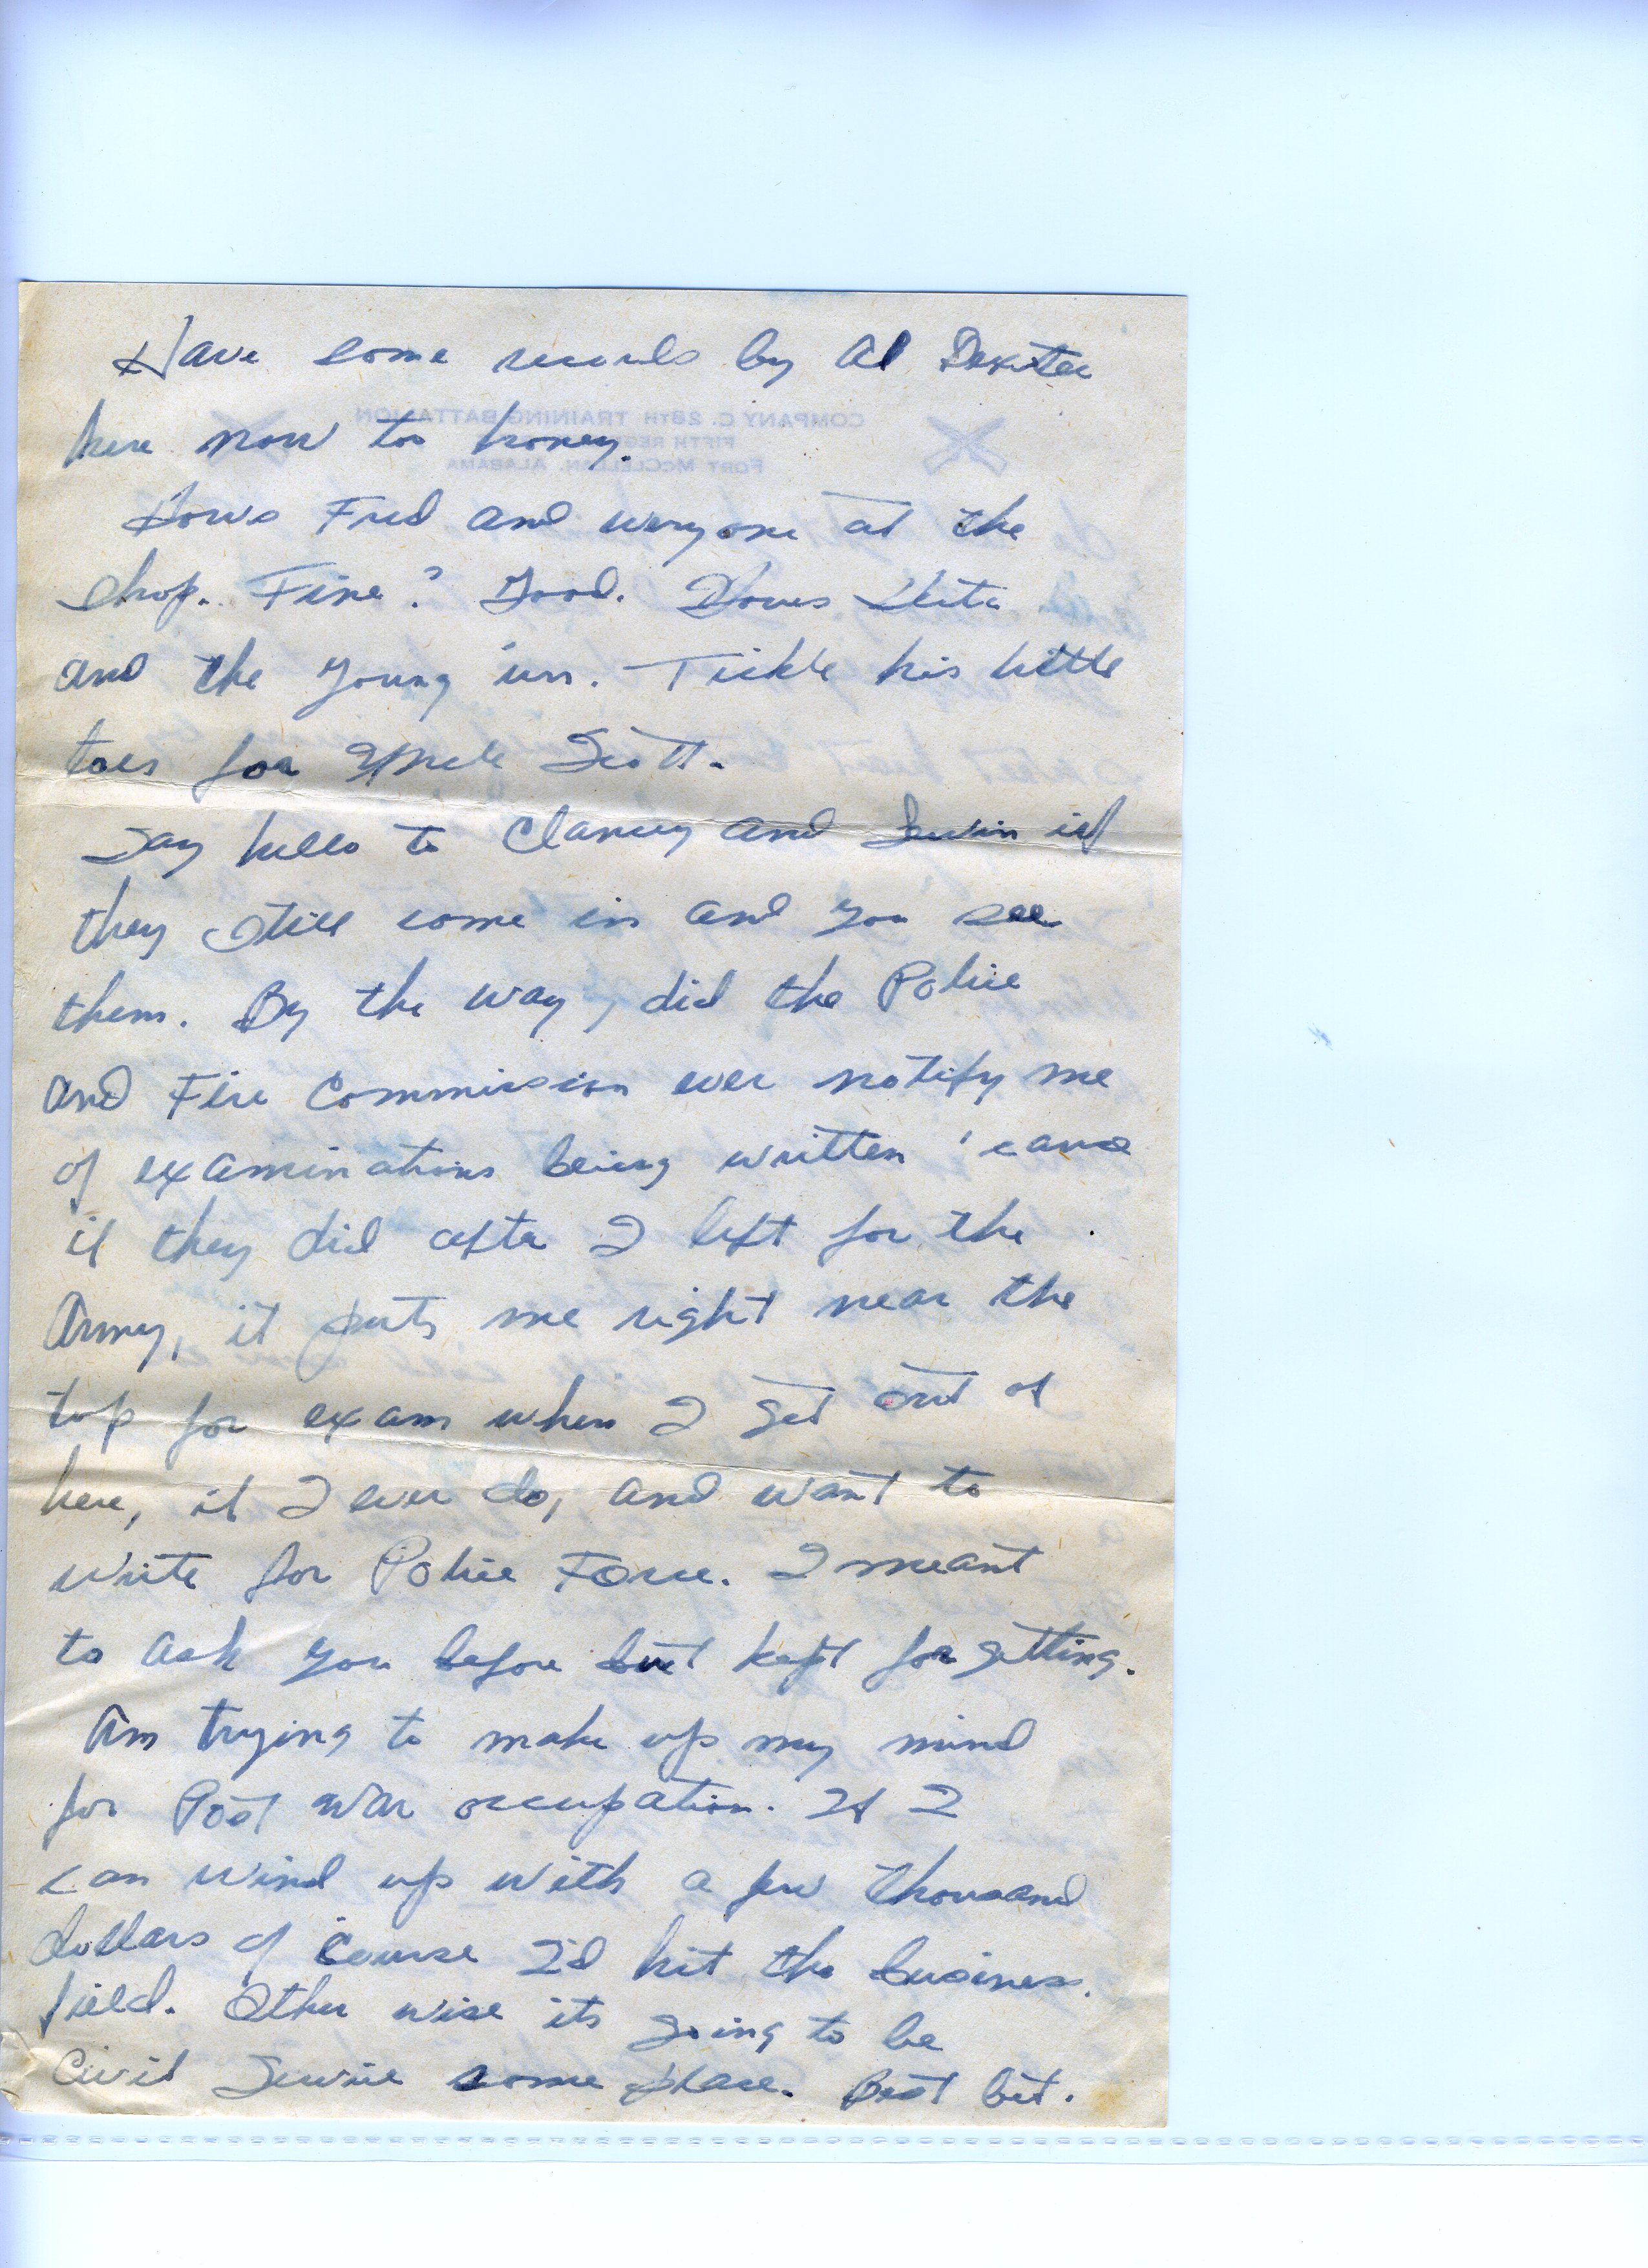 Have some records by Al Dexter
here now too honey.
COMPANY C. 28TH TRAINING BATTALION
FIFTH
FORT MCCLELLAN, ALABAMA
Hows Fred and everyone at the
shop. Fine? Good. Hows
and the young 'un. Tickle his little
toes for Uncle Scott.
Say hello to Clancy and Irwin if
they still come in and you see
them. By the way, did the Police
and Fire Commission ever notify me
of examinations being written 'cause
if they did after I left for the
Army, it puts me right near the
top for exam when I get out of
here, if I ever do, and want to
write for Police Force. I meant
to ask you before but kept forgetting.
Am trying to make up my mind
for Post war occupation. If I
can wind up with a few thousand
dollars of course I'd hit the business
field. Other wise its going to be
Civil Service some place. Best bet.